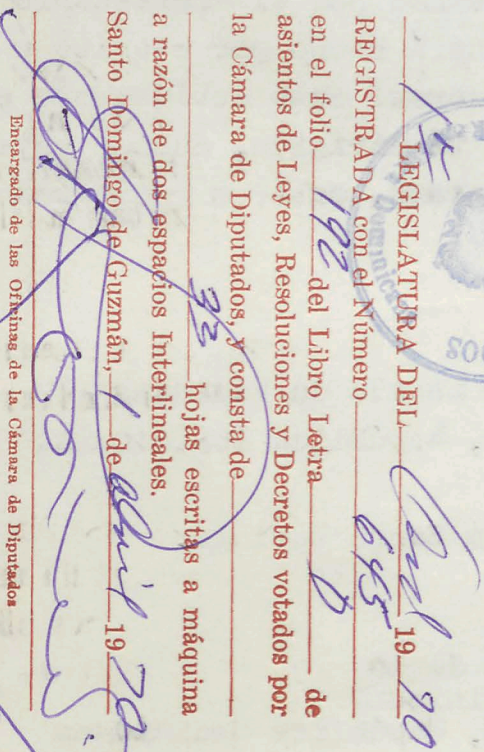 LEGISLATURA DEL 19 70
REGISTRADA con el Número 645
en el folio 192 del Libro Letra de
asientos de Leyes, Resoluciones y Decretos votados por
la Cámara de Diputados, y consta de
33 hojas escritas a máquina
a razón de dos espacios Interlineales.
Santo Domingo de Guzmán, 1 de abril 19 70
Encargado de las Oficinas de la Cámara de Diputados